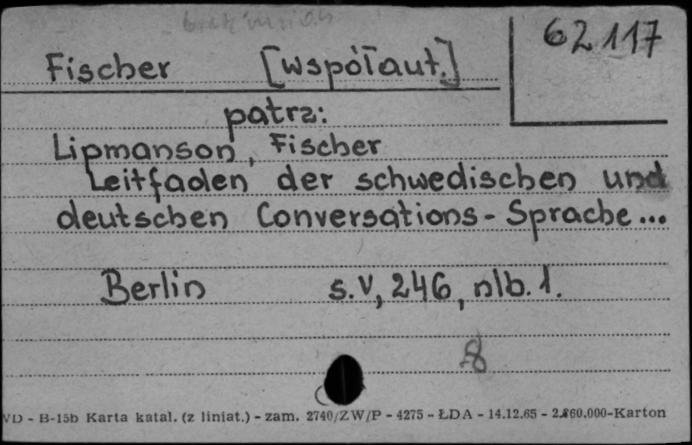 62 117
Fischer [współaut.]
patrz:
Lipmanson, Fischer
Leitfaden der schwedischen und
deutschen Conversations-Sprache...
Berlin s. V, 246, nlb. 1.
8
VD - B-15b Karta katal. (z liniat.) - zam. 2740/ZW/P - 4275 - ŁDA - 14.12.65 - 2.860.000-Karton